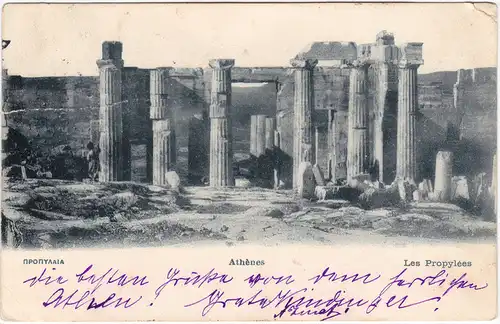 ΠΡΟΠΥΛΑΙΑ Athènes Les Propylées
die besten Grüße von dem herrlichen
Athen!